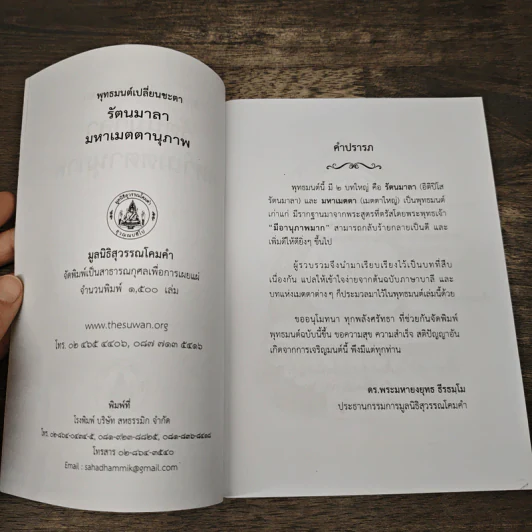 พุทธมนต์เปลี่ยนชะตา
รัตนมาลา
มหาเมตตานุภาพ
มูลนิธิสุวรรณโคมคำ
จัดพิมพ์เป็นสาธารณกุศลเพื่อการเผยแผ่
จำนวนพิมพ์ ๑,๕๐๐ เล่ม
www.thesuwan.org
โทร. ๐๒ ๔๖๕ ๔๔๐๖, ๐๘๗ ๗๑๓ ๕๔๑๖
พิมพ์ที่
โรงพิมพ์ บริษัท สหธรรมิก จำกัด
โทรสาร ๐๒-๘๖๔-๓๕๔๐
Email : sahadhammik@gmail.com
คำปรารภ
พุทธมนต์นี้ มี ๒ บทใหญ่ คือ รัตนมาลา (อิติปิโส
รัตนมาลา) และ มหาเมตตา (เมตตาใหญ่) เป็นพุทธมนต์
เก่าแก่ มีรากฐานมาจากพระสูตรที่ตรัสโดยพระพุทธเจ้า
"มีอานุภาพมาก" สามารถกลับร้ายกลายเป็นดี และ
เพิ่มดีให้ดียิ่งๆ ขึ้นไป
ผู้รวบรวมจึงนำมาเรียบเรียงไว้เป็นบทที่สืบ
เนื่องกัน แปลให้เข้าใจง่ายจากต้นฉบับภาษาบาลี และ
บทแห่งเมตตาต่างๆ ก็ประมวลมาไว้ในพุทธมนต์เล่มนี้ด้วย
ขออนุโมทนา ทุกพลังศรัทธา ที่ช่วยกันจัดพิมพ์
พุทธมนต์ฉบับนี้ขึ้น ขอความสุข ความสำเร็จ สติปัญญาอัน
เกิดจากการเจริญมนต์นี้ พึงมีแด่ทุกท่าน
ดร.พระมหายงยุทธ ธีรธมฺโม
ประธานกรรมการมูลนิธิสุวรรณโคมคำ